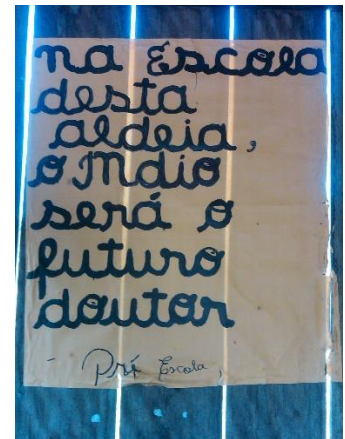 na Escola
desta
aldeia,
o Índio
será o
futuro
doutor
- Pré Escola,